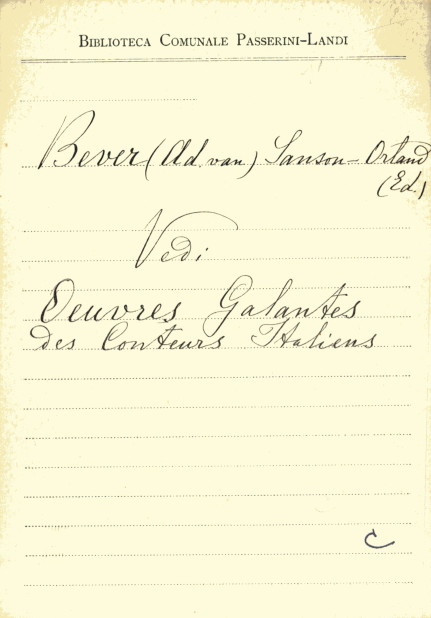 BIBLIOTECA COMUNALE PASSERINI-LANDI
Bever (Ad. van) Sanson-Orland
(Ed.)
Vedi
Oeuvres Galantes
des Conteurs Italiens
C